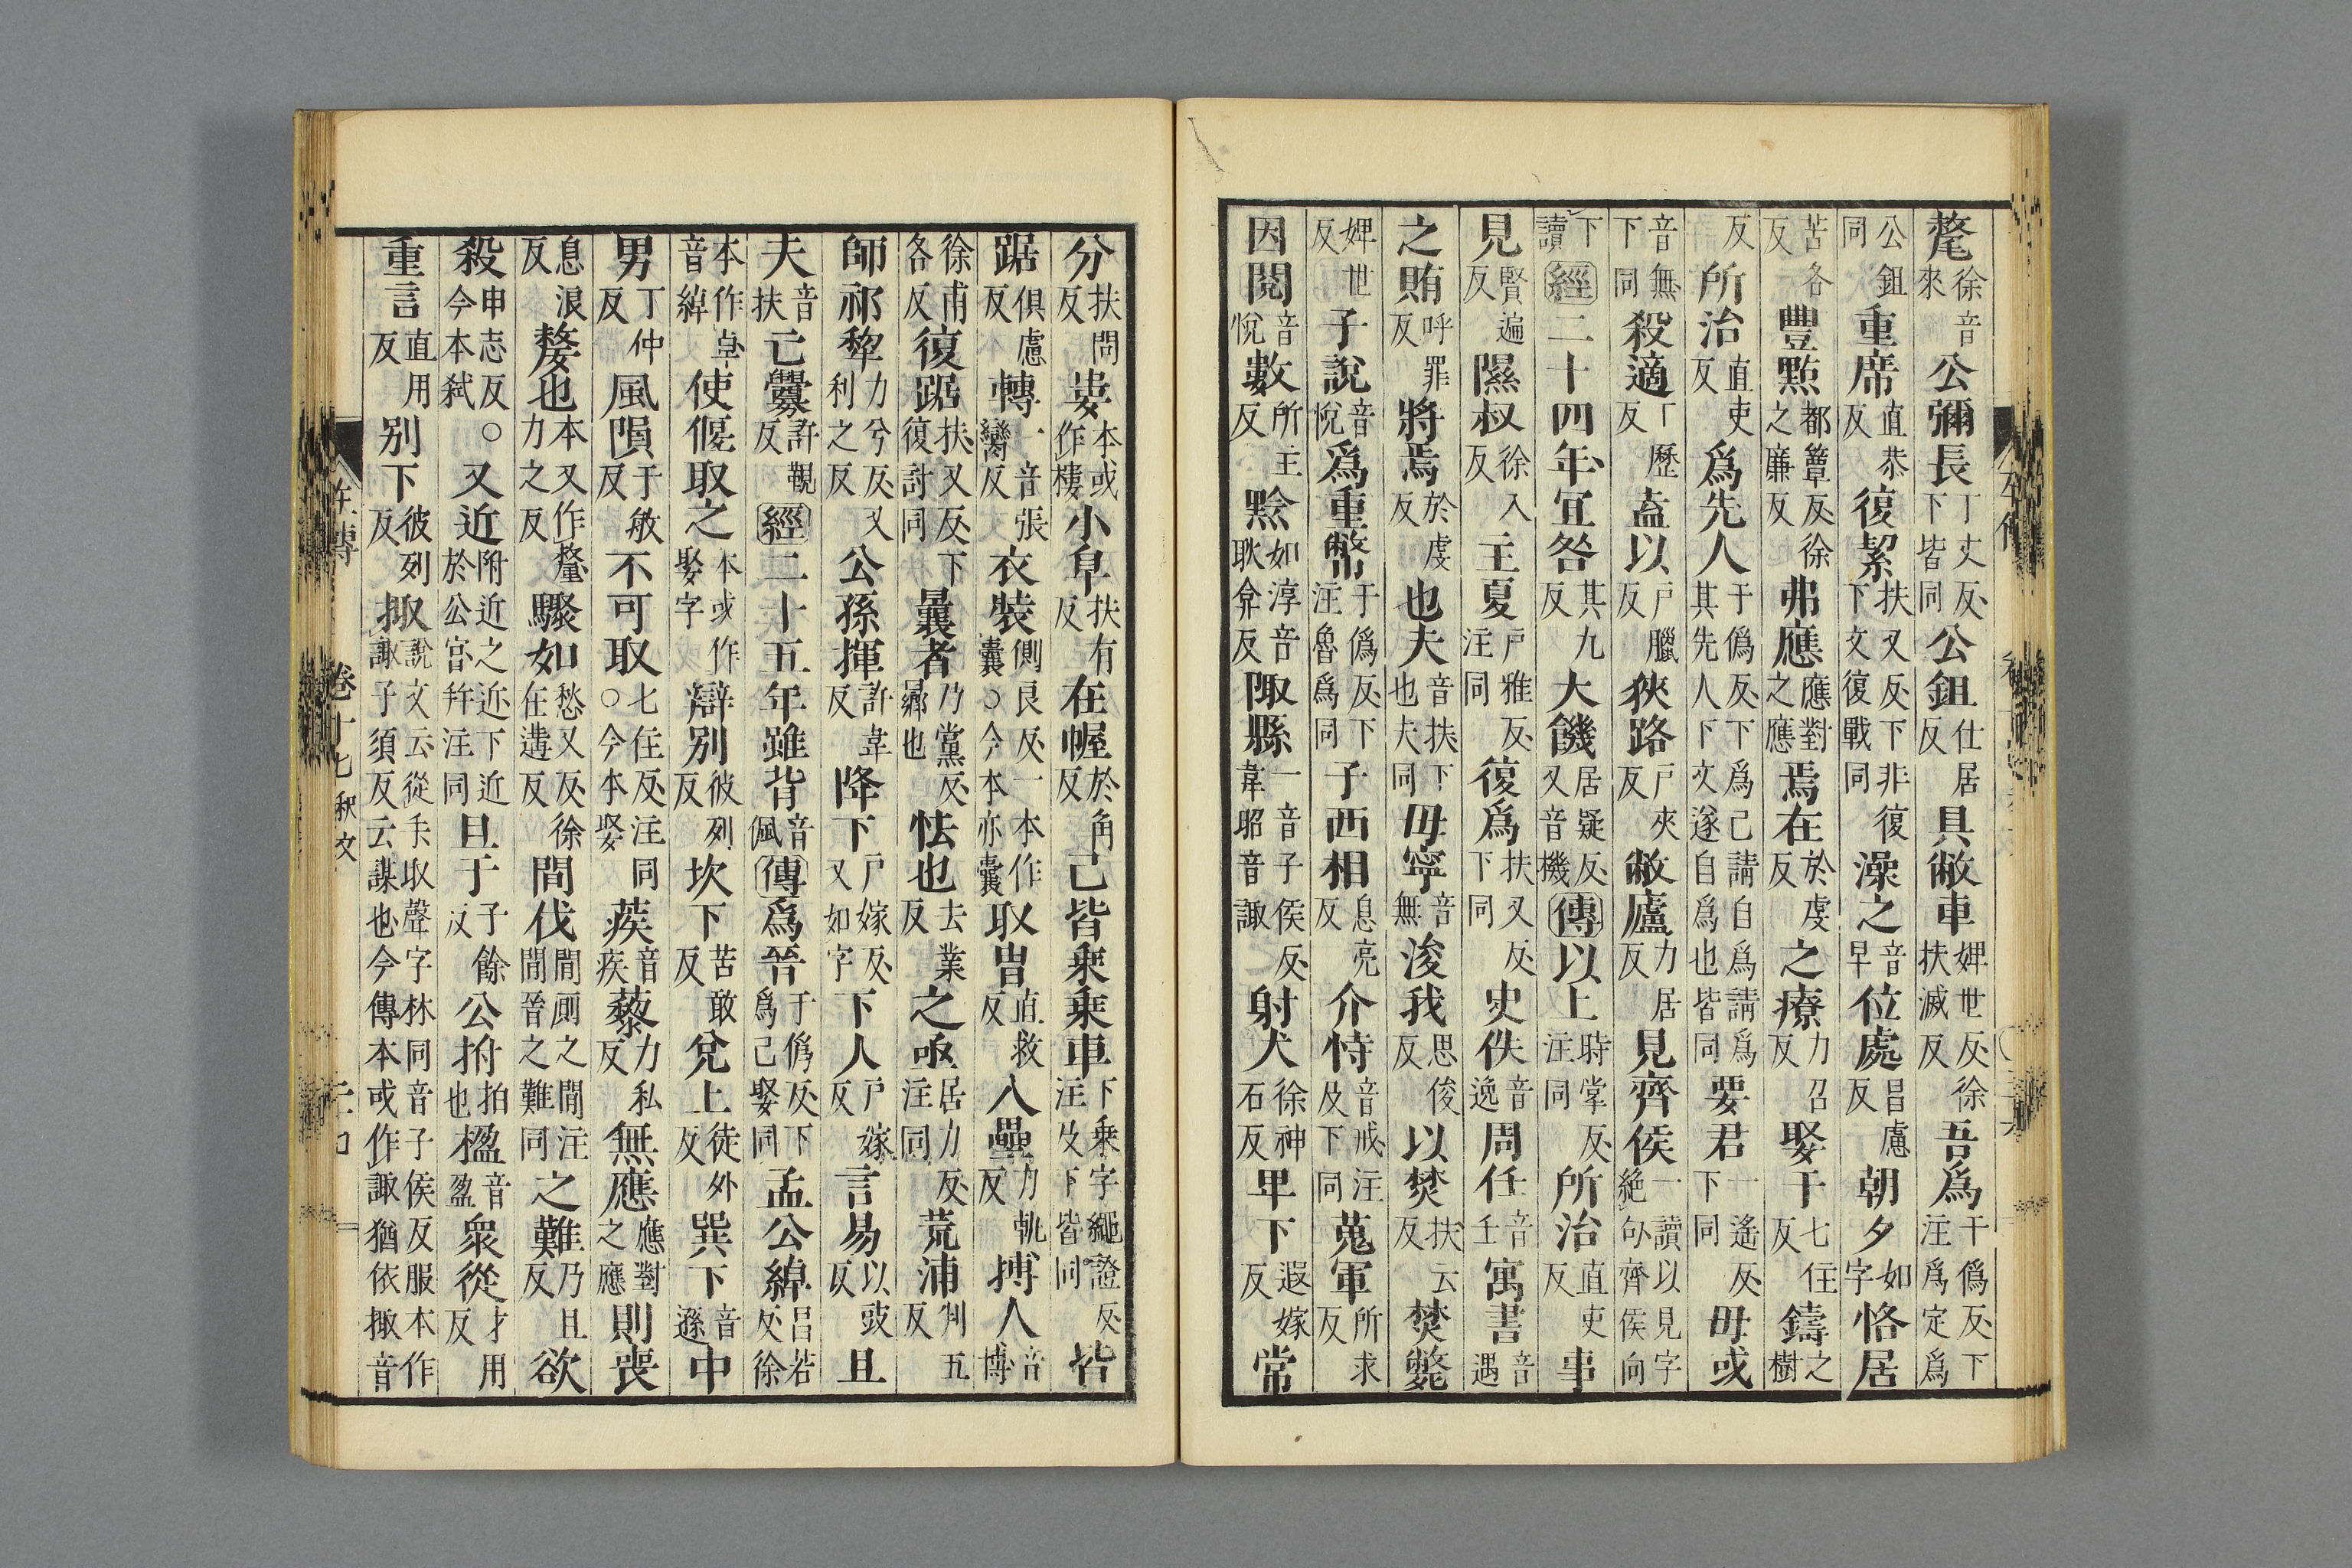 氂徐音來公彌長丁丈反下皆同公鉏仕居反具敝車婢世反徐扶滅反吾爲于僞反下注爲定爲
公鉏同重席直恭反復絜扶又反下非復下文復戰同澡之音早位處昌慮反朝夕如字恪居
苦各反豐㸃都簟反徐之廉反弗應應對之應焉在於虔反之療力召反娶于七住反鑄之樹
反所治直吏反爲先人于僞反下爲己請自爲請爲其先人下文遂自爲也皆同要君一遙反下同毋或
音無下同殺適丁歷反盍以戸臘反狹路戸夾反敝廬力居反見齊侯一讀以見字絶句齊侯向
下讀經二十四年宜咎其九反大饑居疑反又音機傳以上時掌反注同所治直吏反事
見賢遍反隰叔徐入反主夏戸雅反注同復爲扶又反下同史佚音逸周任音壬寓書音遇
之賄呼罪反將焉於虔反也夫音扶下也夫同毋寧音無浚我思俊反以焚扶云反焚斃
婢世反子說音悅爲重幣于僞反下注魯爲同子西相息亮反介恃音戒注及下同蒐軍所求反
因閱音悅數所主反黥如淳音耿弇反陬縣一音子侯反韋昭音諏射犬徐神石反卑下遐嫁反常
分扶問反婁本或作樓小阜扶有反在幄於角反己皆乘乘車下乘字繩證反注及下皆同皆
踞俱慮反轉一音張臠反衣裝側良反一本作囊○今本亦囊取胄直救反入壘力軌反搏人音博
徐甫各反復踞扶又反下復討同曩者乃黨反曏也怯也去業反之亟居力反注同荒浦判五反
師祁犂力兮反又利之反公孫揮許韋反降下戸嫁反又如字下人戸嫁反言易以豉反且
夫音扶亡釁許覲反經二十五年雖背音佩傳爲晉于僞反下爲己娶同孟公綽昌若反徐
本作卓音綽使偃取之本或作娶字辯別彼列反坎下苦敢反兌上徒外反巽下音遜中
男丁仲反風隕于敏反不可取七住反注同○今本娶蒺音疾藜力私反無應應對之應則喪
息浪反嫠也本又作釐力之反驟如愁又反徐在遘反間伐間廁之間注間晉之難同之難乃旦反欲
殺申志反○今本弑又近附近之近下近於公宮幷注同且于子餘反公拊拍也楹音盈衆從才用反
重言直用反别下彼列反掫說文云從手取聲字林同音子侯反服本作諏子須反云謀也今傳本或作諏猶依掫音
卷十七釈文